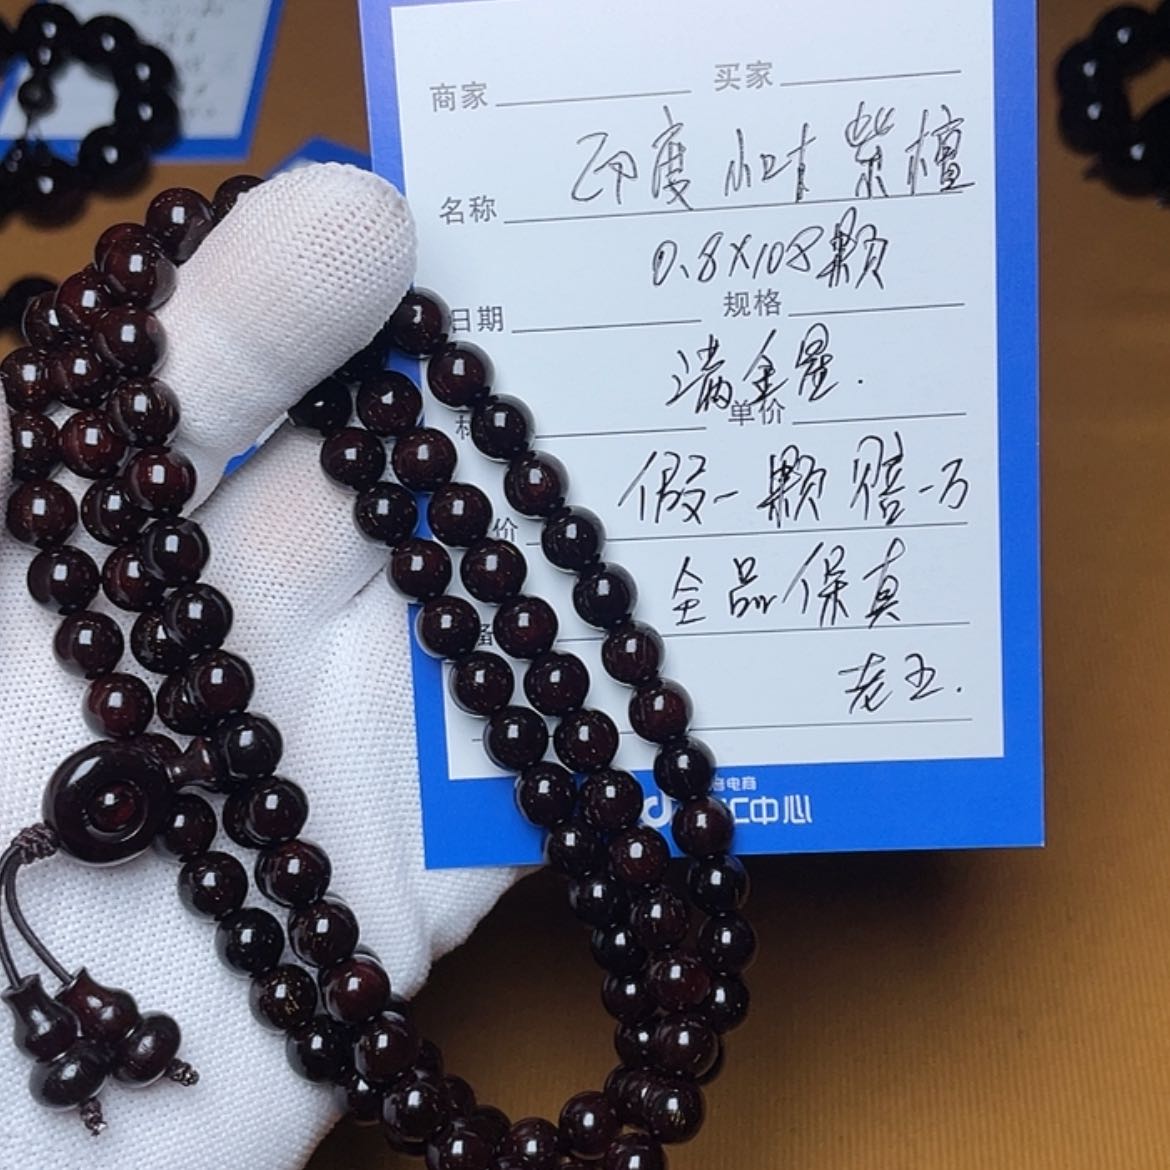 商家 买家
印度小叶紫檀
名称
0.8X108颗
日期 规格
满金星.
单价
假一颗赔一万
价
全品保真
备
老王.
音电商
中心